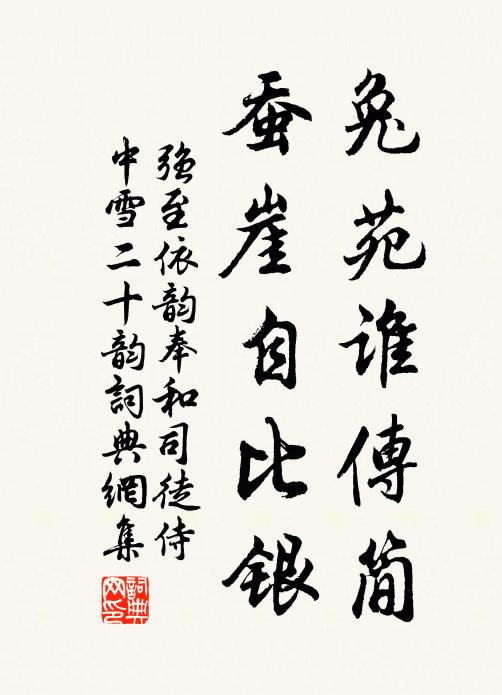 兔苑谁傳简
蚕崖自比銀
強至依韵奉和司徒侍
中雪二十韵詞典網集